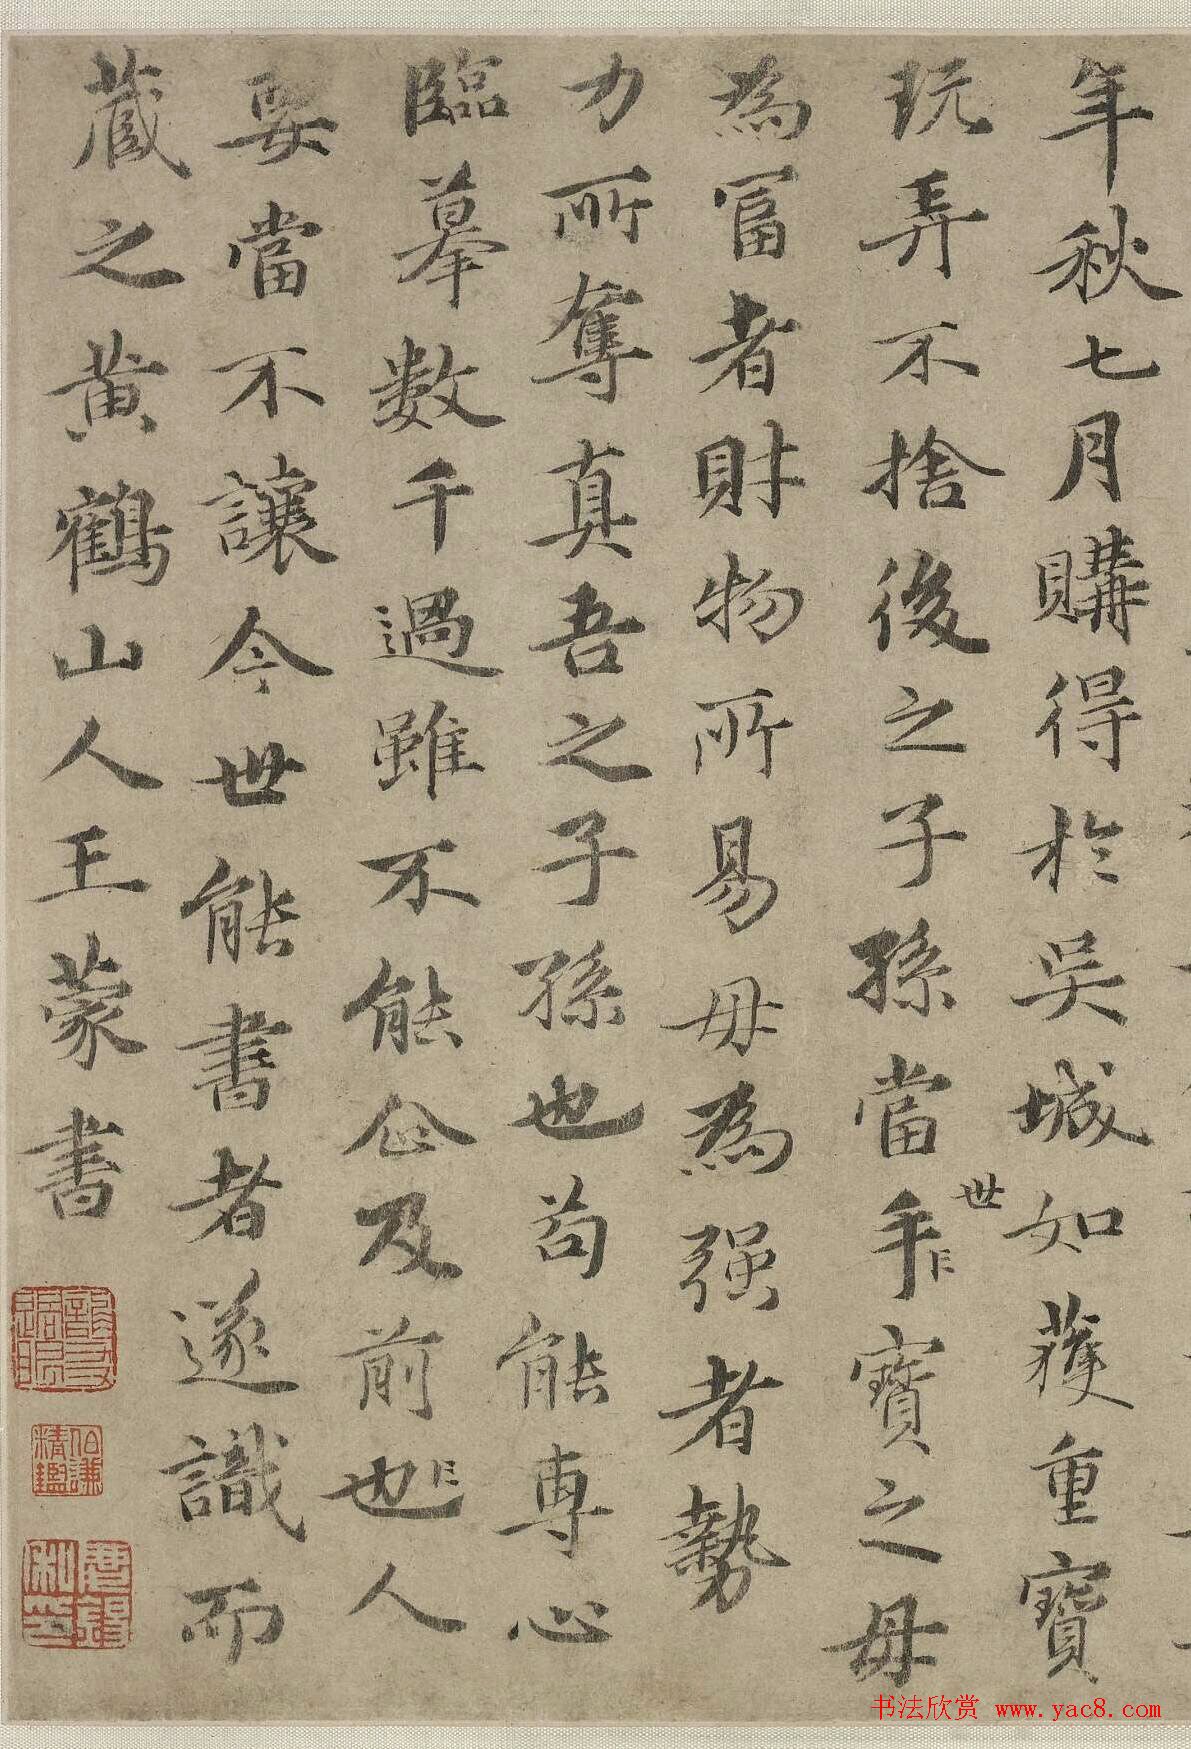 年秋七月購得於吳城如獲重寶
玩弄不捨後之子孫當手世寶之毋
為富者財物所易毋為强者勢
力所奪真吾之子孫也苟能專心
臨摹數千過雖不能企及前也人
要當不讓今世能書者遂識而
藏之黃鶴山人王蒙書
伯謙
精鑑
书法欣赏 www.yac8.com